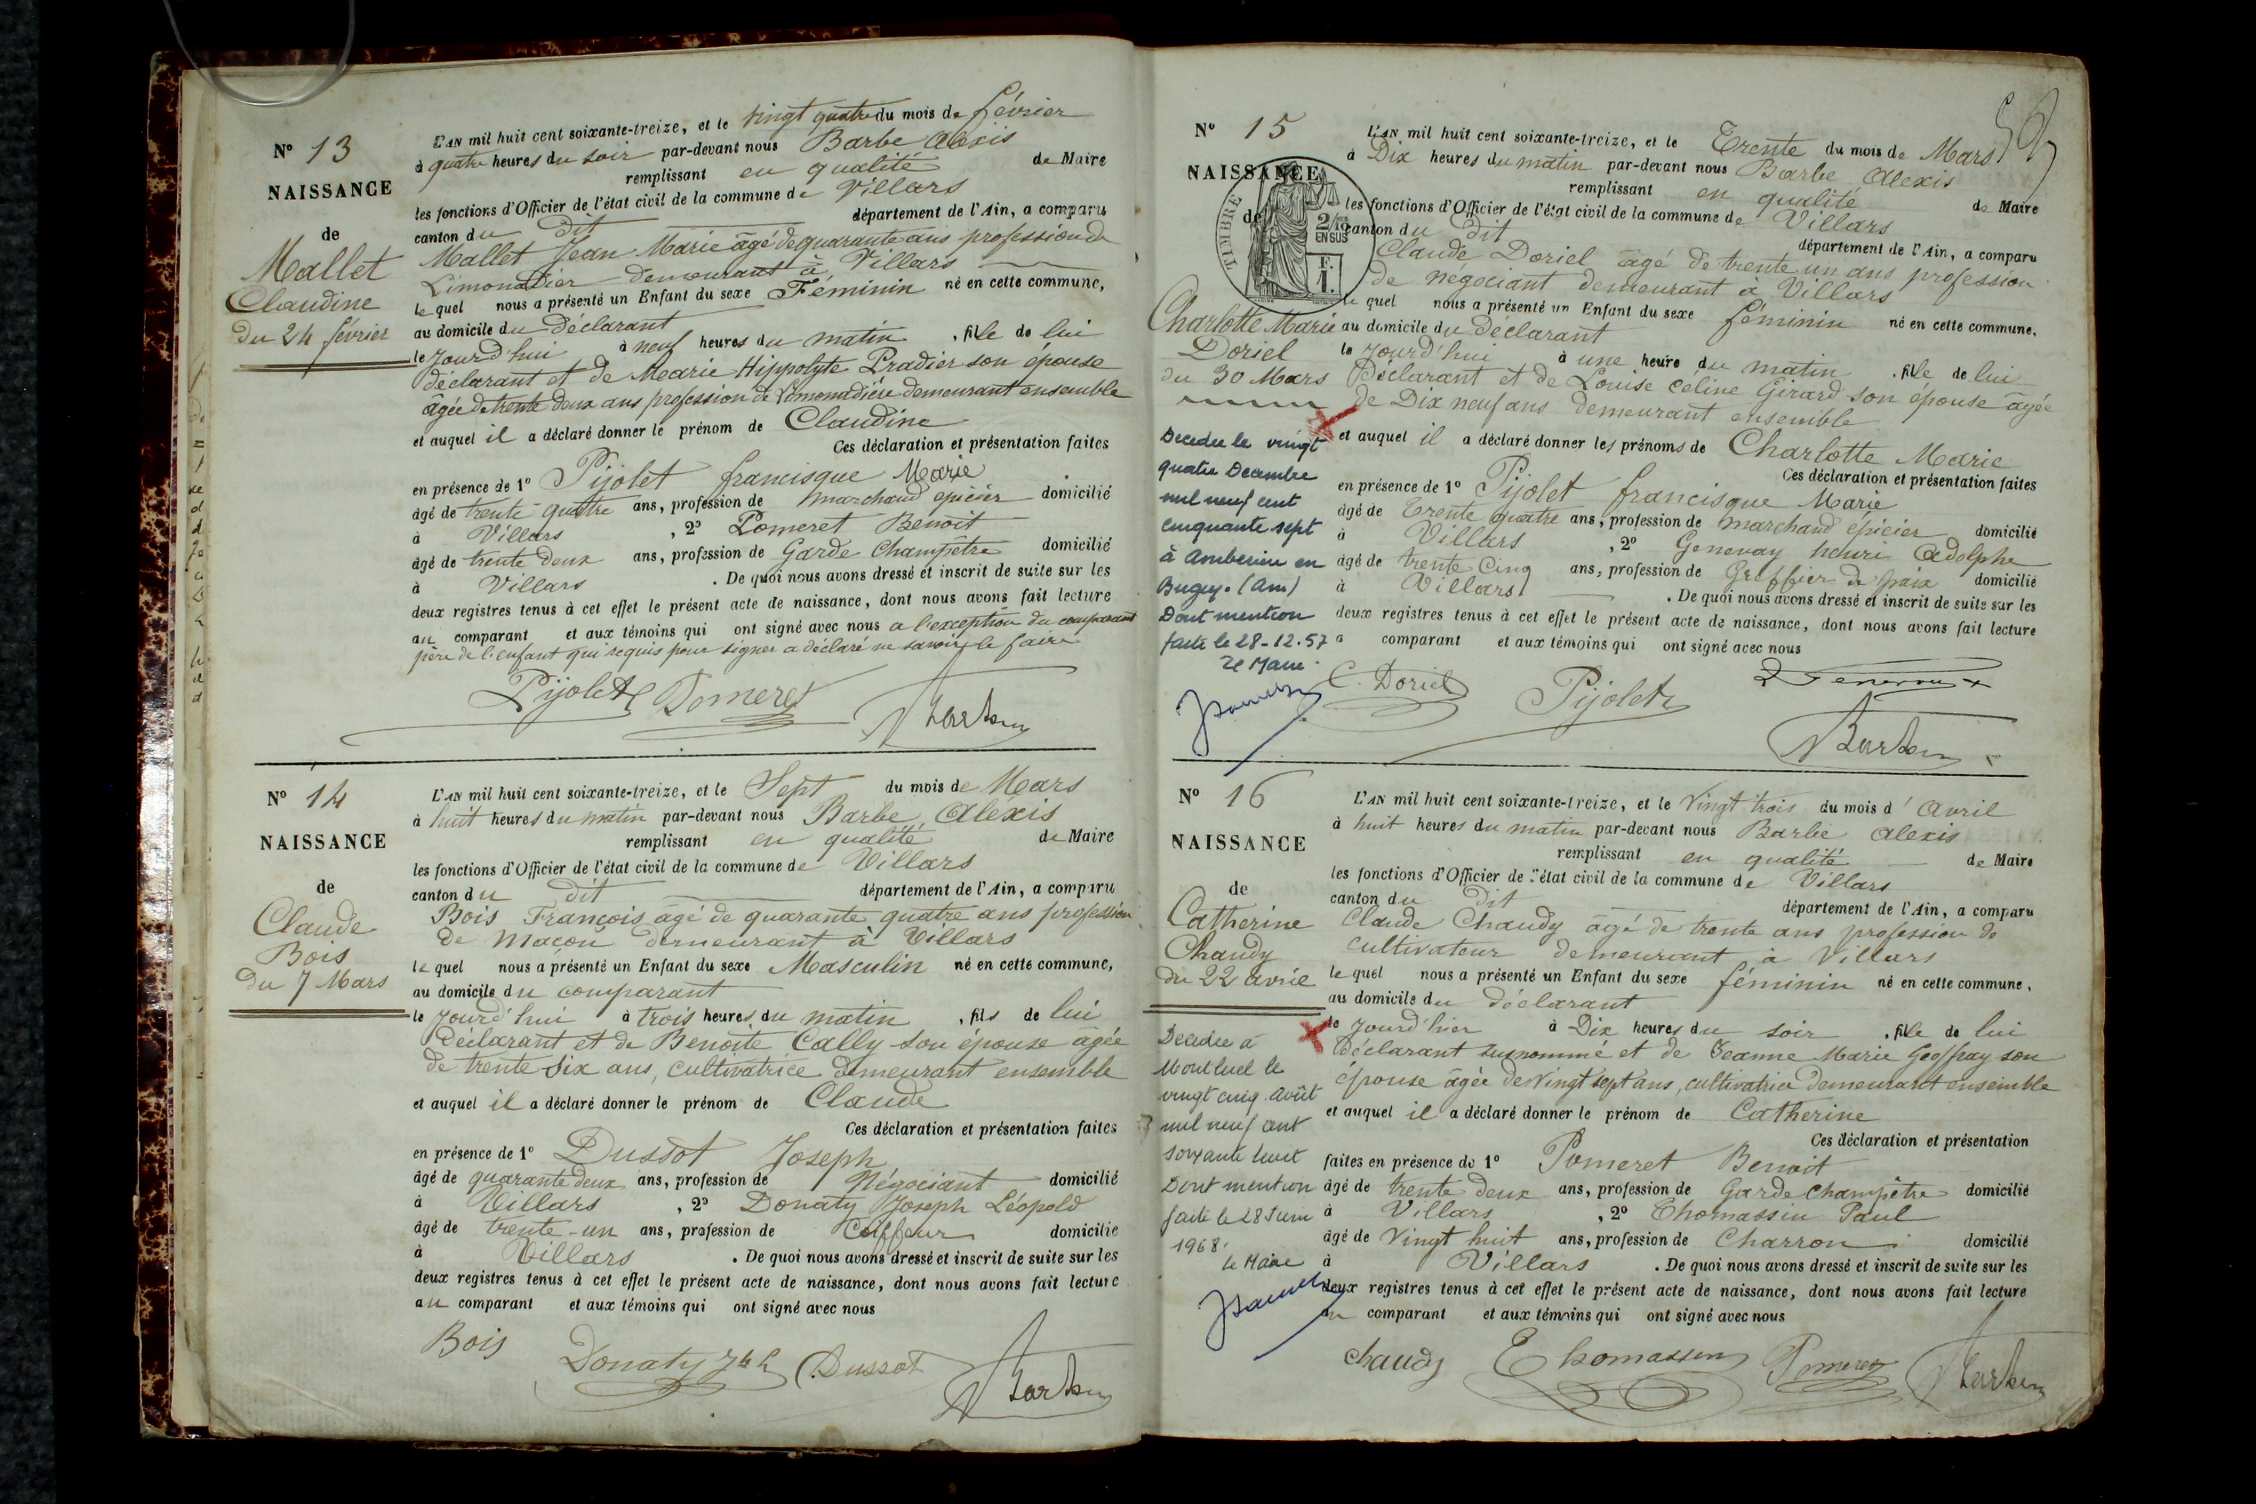 N° 13
NAISSANCE
de
Mallet
Claudine
du 24 février
L'AN mil huit cent soixante-treize, et le vingt quatre du mois de février
à quatre heures du soir par-devant nous Barbe Alexis
remplissant en qualité de Maire
les fonctions d'Officier de l'état civil de la commune de Villars
canton du dit département de l'Ain, a comparu
Mallet Jean Marie âgé de quarante ans profession de
Limonadier demeurant à Villars
le quel nous a présenté un Enfant du sexe Féminin né en cette commune,
au domicile du déclarant
le jourd'hui à neuf heures du matin, fille de lui
déclarant et de Marie Hippolyte Pradier son épouse
âgée de trente deux ans profession de Limonadière demeurant ensemble
et auquel il a déclaré donner le prénom de Claudine
Ces déclaration et présentation faites
en présence de 1° Pijolet francisque Marie
âgé de trente-quatre ans, profession de marchand épicier domicilié
à Villars, 2° Pomeret Benoit
âgé de trente deux ans, profession de Garde Champêtre domicilié
à Villars. De quoi nous avons dressé et inscrit de suite sur les
deux registres tenus à cet effet le présent acte de naissance, dont nous avons fait lecture
au comparant et aux témoins qui ont signé avec nous a l'exception du comparant
père de l'enfant qui requis pour signer a déclaré ne savoir le faire
Pijolet Pomeret Barbe
N° 14
NAISSANCE
de
Claude
Bois
du 7 Mars
L'AN mil huit cent soixante-treize, et le Sept du mois de Mars
à huit heures du matin par-devant nous Barbe Alexis
remplissant en qualité de Maire
les fonctions d'Officier de l'état civil de la commune de Villars
canton du dit département de l'Ain, a comparu
Bois François âgé de quarante quatre ans profession
de Maçon demeurant à Villars
le quel nous a présenté un Enfant du sexe Masculin né en cette commune,
au domicile du comparant
le jourd'hui à trois heures du matin, fils de lui
Déclarant et de Benoite Cally son épouse âgée
de trente six ans, cultivatrice demeurant ensemble
et auquel il a déclaré donner le prénom de Claude
Ces déclaration et présentation faites
en présence de 1° Dussot Joseph
âgé de quarante deux ans, profession de Négociant domicilié
à Villars, 2° Donaty Joseph Léopold
âgé de trente-un ans, profession de Coiffeur domicilié
à Villars. De quoi nous avons dressé et inscrit de suite sur les
deux registres tenus à cet effet le présent acte de naissance, dont nous avons fait lecture
au comparant et aux témoins qui ont signé avec nous
Bois Donaty Jph Dussot Barbe
N° 15
NAISSANCE
de
TIMBRE
2/10 EN SUS
F. 1.
Charlotte Marie
Doriel
du 30 Mars
L'AN mil huit cent soixante-treize, et le Trente du mois de Mars
à Dix heures du matin par-devant nous Barbe Alexis
remplissant en qualité de Maire
les fonctions d'Officier de l'état civil de la commune de Villars
canton du dit département de l'Ain, a comparu
Claude Doriel âgé de trente un ans profession
de négociant demeurant à Villars
le quel nous a présenté un Enfant du sexe féminin né en cette commune.
au domicile du déclarant
le jourd'hui à une heure du matin, fille de lui
Déclarant et de Louise Céline Girard son épouse âgée
de Dix neuf ans demeurant ensemble
et auquel il a déclaré donner les prénoms de Charlotte Marie
Ces déclaration et présentation faites
en présence de 1° Pijolet francisque Marie
âgé de Trente quatre ans, profession de marchand épicier domicilié
à Villars, 2° Genevay henri Adolphe
âgé de trente Cinq ans, profession de Greffier de paix domicilié
à Villars. De quoi nous avons dressé et inscrit de suite sur les
deux registres tenus à cet effet le présent acte de naissance, dont nous avons fait lecture
a comparant et aux témoins qui ont signé avec nous
C. Doriel Pijolet Barbe
Decedee le vingt
quatre Decembre
mil neuf cent
cinquante sept
à Amberieu en
Bugey. (Ain)
Dont mention
faite le 28-12.57
Le Maire.
N° 16
NAISSANCE
de
Catherine
Chaudy
du 22 avril
L'AN mil huit cent soixante-treize, et le Vingt trois du mois d' Avril
à huit heures du matin par-devant nous Barbe Alexis
remplissant en qualité de Maire
les fonctions d'Officier de l'état civil de la commune de Villars
canton du Dit département de l'Ain, a comparu
Claude Chaudy âgé de trente ans profession de
cultivateur demeurant à Villars
le quel nous a présenté un Enfant du sexe féminin né en cette commune,
au domicile du déclarant
le jourd'hier à Dix heures du soir, fille de lui
déclarant susnommé et de Jeanne Marie Geoffray son
épouse âgée de vingt sept ans, cultivatrice demeurant ensemble
et auquel il a déclaré donner le prénom de Catherine
Ces déclaration et présentation
faites en présence de 1° Pomeret Benoit
âgé de trente deux ans, profession de Garde champêtre domicilié
à Villars, 2° Thomassin Paul
âgé de Vingt huit ans, profession de Charron domicilié
à Villars. De quoi nous avons dressé et inscrit de suite sur les
deux registres tenus à cet effet le présent acte de naissance, dont nous avons fait lecture
au comparant et aux témoins qui ont signé avec nous
chaudy Thomassin Pomeret Barbe
Decedee à
Montluel le
vingt cinq Août
mil neuf cent
soixante huit
Dont mention
faite le 28
1968.
Le Maire